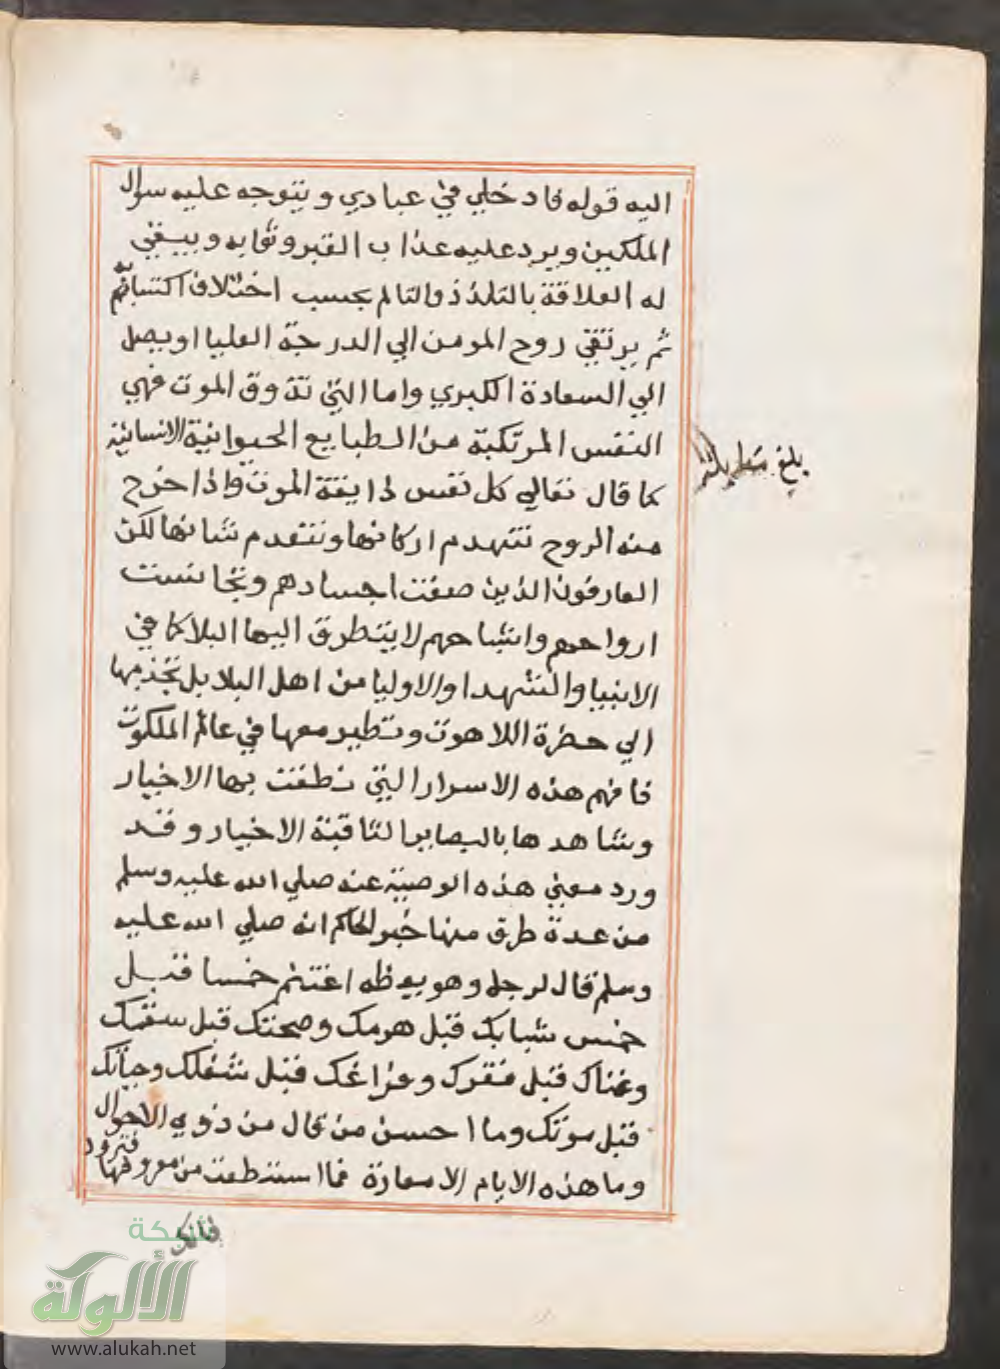 اليه قوله فادخلي في عبادي ويتوجه عليه سوال
الملكين ويرد عليه عذاب القبر وثوابه ويبقي
له العلاقة بالتلذذ والتالم بحسب اختلاف اكتسابهم
ثم يرتقي روح المومن الي الدرجة العليا او يصل
الي السعادة الكبري واما التي تذوق الموت فهي
النفس المرتكبة من الطبايع الحيوانية الانسانية
كما قال تعالي كل نفس ذايقة الموت واذا خرج
منه الروح تنهدم اركانها وتنعدم لكن
العارفون الذين صفت اجسادهم وتجانست
ارواحهم واشباحهم لا يتطرق اليها البلا كما في
الانبيا والشهدا والاوليا من اهل البلا بل تجذبها
الي حضرة اللاهوت وتطير معها في عالم الملكوت
فافهم هذه الاسرار التي نطقت بها الاخيار
وشاهدها بالبصاير الثاقبة الاخيار وقد
ورد معني هذه الوصية عنه صلي الله عليه وسلم
من عدة طرق منها خبر الحاكم انه صلي الله عليه
وسلم قال لرجل وهو يعظه اغتنم خمسا قبل
خمس شبابك قبل هرمك وصحتك قبل سقمك
وغناك قبل فقرك وفراغك قبل شغلك وحياتك
قبل موتك وما احسن من قال من ذوي الاحوال
وما هذه الايام الا معارة فما اسطعت من معروفها فتزود
بلغ
فانك
شبكة
الألوكة
www.alukah.net